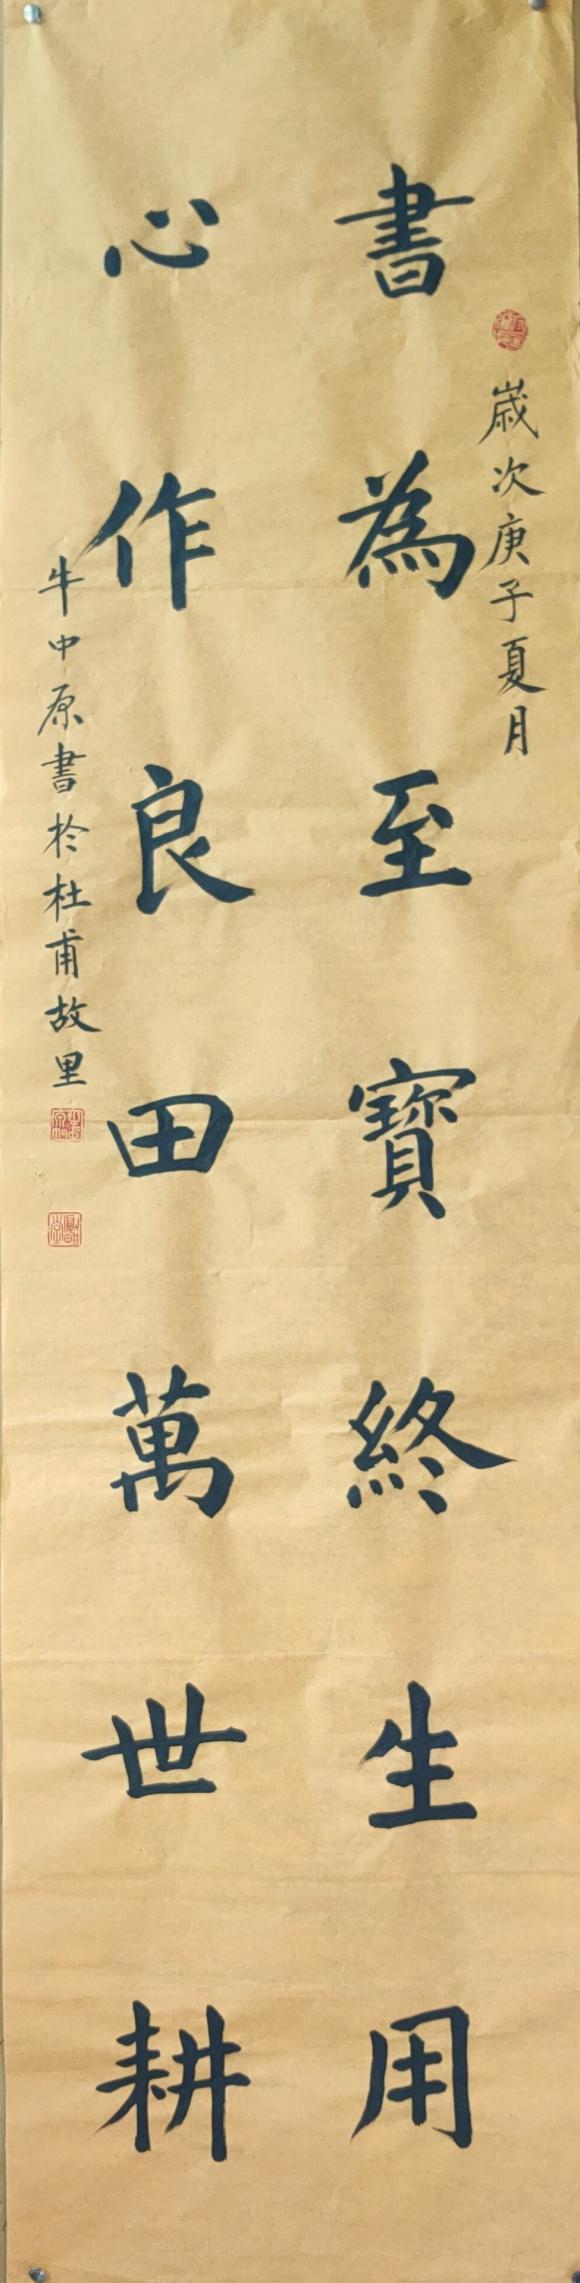 歲次庚子夏月
書為至寶終生用
心作良田萬世耕
牛中原書於杜甫故里